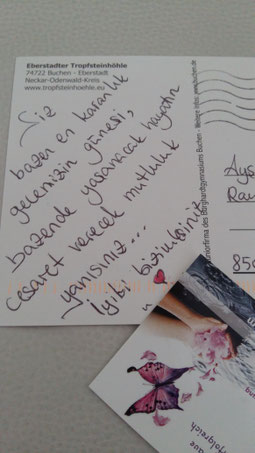 Eberstadter Tropfsteinhöhle
74722 Buchen - Eberstadt
Neckar-Odenwald-Kreis
www.tropfsteinhoehle.eu
Siz
bazen en karanlık
gecemizin güneşi,
bazende yaşanacak hayatın
cesaret verecek mutluluk
yanısınız...
İyiki bizimlesiniz
Juniorfirma des Burghardtgymnasiums Buchen - Weitere Infos: www.buchen.de
Ays
Rau
856
olgreich